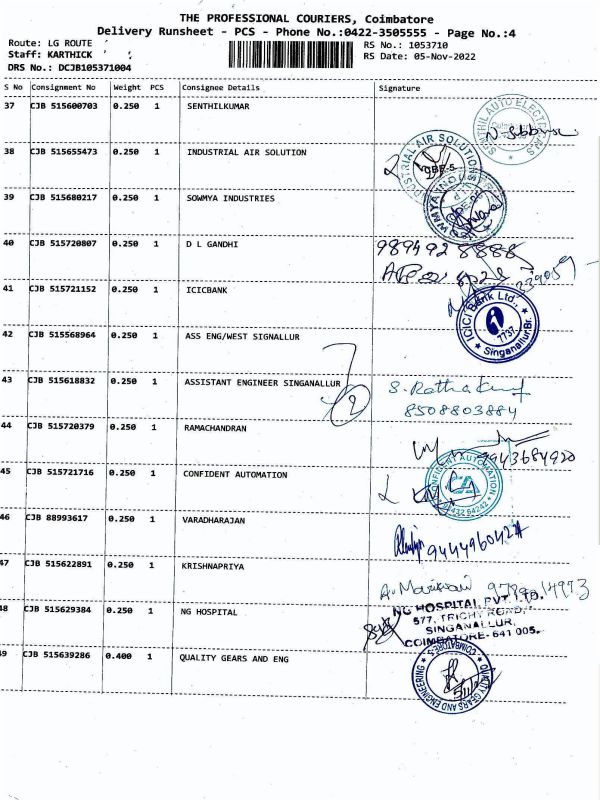 THE PROFESSIONAL COURIERS, Coimbatore
Delivery Runsheet - PCS - Phone No.:0422-3505555 - Page No.:4
Route: LG ROUTE
Staff: KARTHICK
DRS No.: DCJB105371004
RS No.: 1053710
RS Date: 05-Nov-2022
S No Consignment No Weight PCS Consignee Details Signature
37 CJB 515600703 0.250 1 SENTHILKUMAR
38 CJB 515655473 0.250 1 INDUSTRIAL AIR SOLUTION
CBE-5
39 CJB 515680217 0.250 1 SOWMYA INDUSTRIES
40 CJB 515720807 0.250 1 D L GANDHI
9894928888
41 CJB 515721152 0.250 1 ICICBANK
ICICI Bank Ltd.,
1737
Singanallur Br.
42 CJB 515568964 0.250 1 ASS ENG/WEST SIGNALLUR
43 CJB 515618832 0.250 1 ASSISTANT ENGINEER SINGANALLUR
2
8508803884
44 CJB 515720379 0.250 1 RAMACHANDRAN
9943684920
45 CJB 515721716 0.250 1 CONFIDENT AUTOMATION
CONFIDENT AUTOMATION
46 CJB 88993617 0.250 1 VARADHARAJAN
47 CJB 515622891 0.250 1 KRISHNAPRIYA
48 CJB 515629384 0.250 1 NG HOSPITAL
NG HOSPITAL PVT LTD.
577, TRICHY ROAD,
SINGANALLUR,
COIMBATORE- 641 005.
49 CJB 515639286 0.400 1 QUALITY GEARS AND ENG
QUALITY GEARS AND ENGINEERING